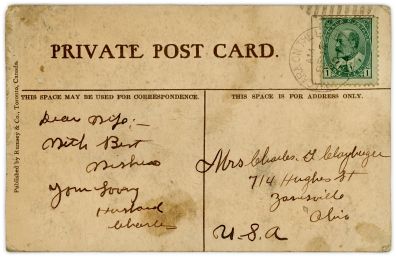 PRIVATE POST CARD.
1 1
THIS SPACE MAY BE USED FOR CORRESPONDENCE.
THIS SPACE IS FOR ADDRESS ONLY.
Published by Rumsey & Co., Toronto, Canada.
Dear Wife:-
With Best
Wishes
Your Loving
Husband
Charlie
Mrs Charles H Clayburger
714 Hughes St
Zanesville
Ohio
U.S.A